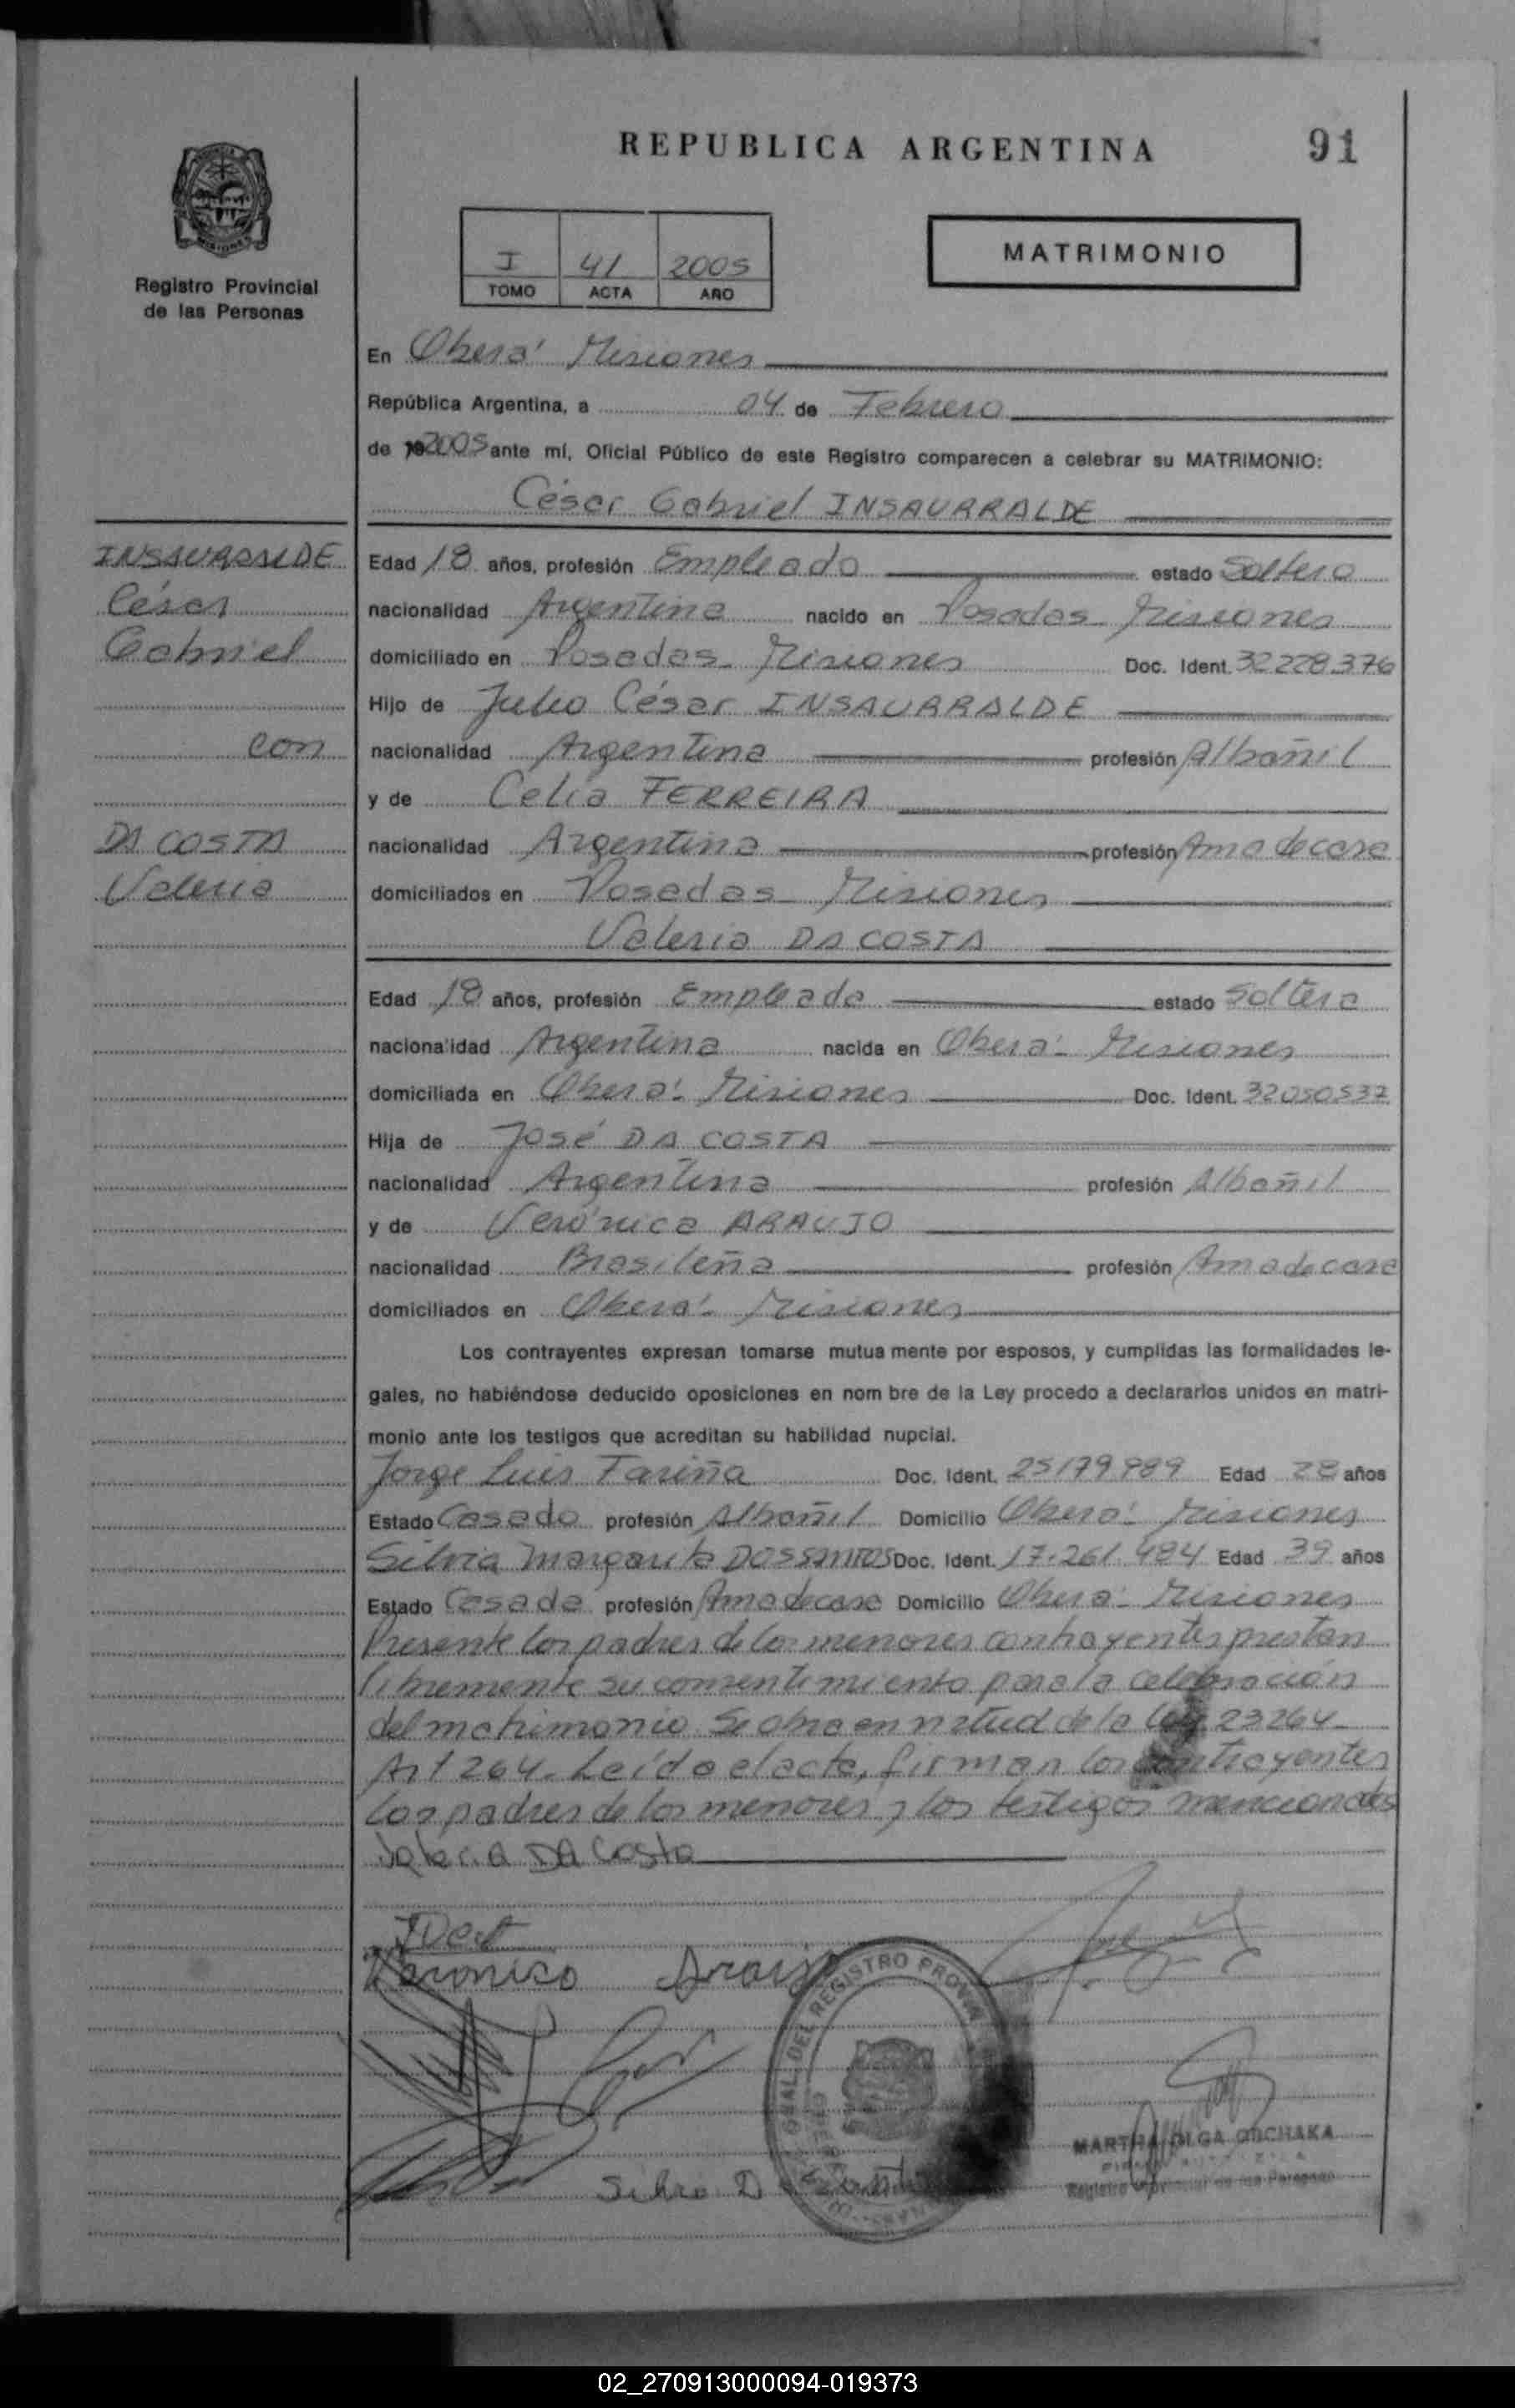 REPUBLICA ARGENTINA
91
Registro Provincial
de las Personas
I 41 2005
TOMO ACTA AÑO
MATRIMONIO
En Oberá Misiones
República Argentina, a 04 de Febrero
de 2005 ante mí, Oficial Público de este Registro comparecen a celebrar su MATRIMONIO:
César Gabriel INSAURRALDE
INSAURRALDE
César
Gabriel
con
DA COSTA
Valeria
Edad 18 años, profesión Empleado estado Soltero
nacionalidad Argentina nacido en Posadas Misiones
domiciliado en Posadas Misiones Doc. Ident. 32228376
Hijo de Julio César INSAURRALDE
nacionalidad Argentina profesión Albañil
y de Celia FERREIRA
nacionalidad Argentina profesión Ama de casa
domiciliados en Posadas Misiones
Valeria DA COSTA
Edad 18 años, profesión Empleada estado Soltera
nacionalidad Argentina nacida en Oberá Misiones
domiciliada en Oberá Misiones Doc. Ident. 32050537
Hija de José DA COSTA
nacionalidad Argentina profesión Albañil
y de Verónica ARAUJO
nacionalidad Brasileña profesión Ama de casa
domiciliados en Oberá Misiones
Los contrayentes expresan tomarse mutua mente por esposos, y cumplidas las formalidades le-
gales, no habiéndose deducido oposiciones en nom bre de la Ley procedo a declararlos unidos en matri-
monio ante los testigos que acreditan su habilidad nupcial.
Jorge Luis Fariña Doc. Ident. 25179989 Edad 28 años
Estado Casado profesión Albañil Domicilio Oberá Misiones
Silvia Margarita DOS SANTOS Doc. Ident. 17.261.484 Edad 39 años
Estado Casada profesión Ama de casa Domicilio Oberá Misiones
Presente los padres de los menores contrayentes prestan
libremente su consentimiento para la celebración
del matrimonio. Se obra en virtud de la Ley 23264
Art 264. Leído el acta, firman los contrayentes
los padres de los menores y los testigos mencionados
Valeria DA Costa
Veronica Araujo
GRAL. DEL REGISTRO PROVIN
Silvia D
MARTHA OLGA
Registro Provincial de las Personas
02_270913000094-019373